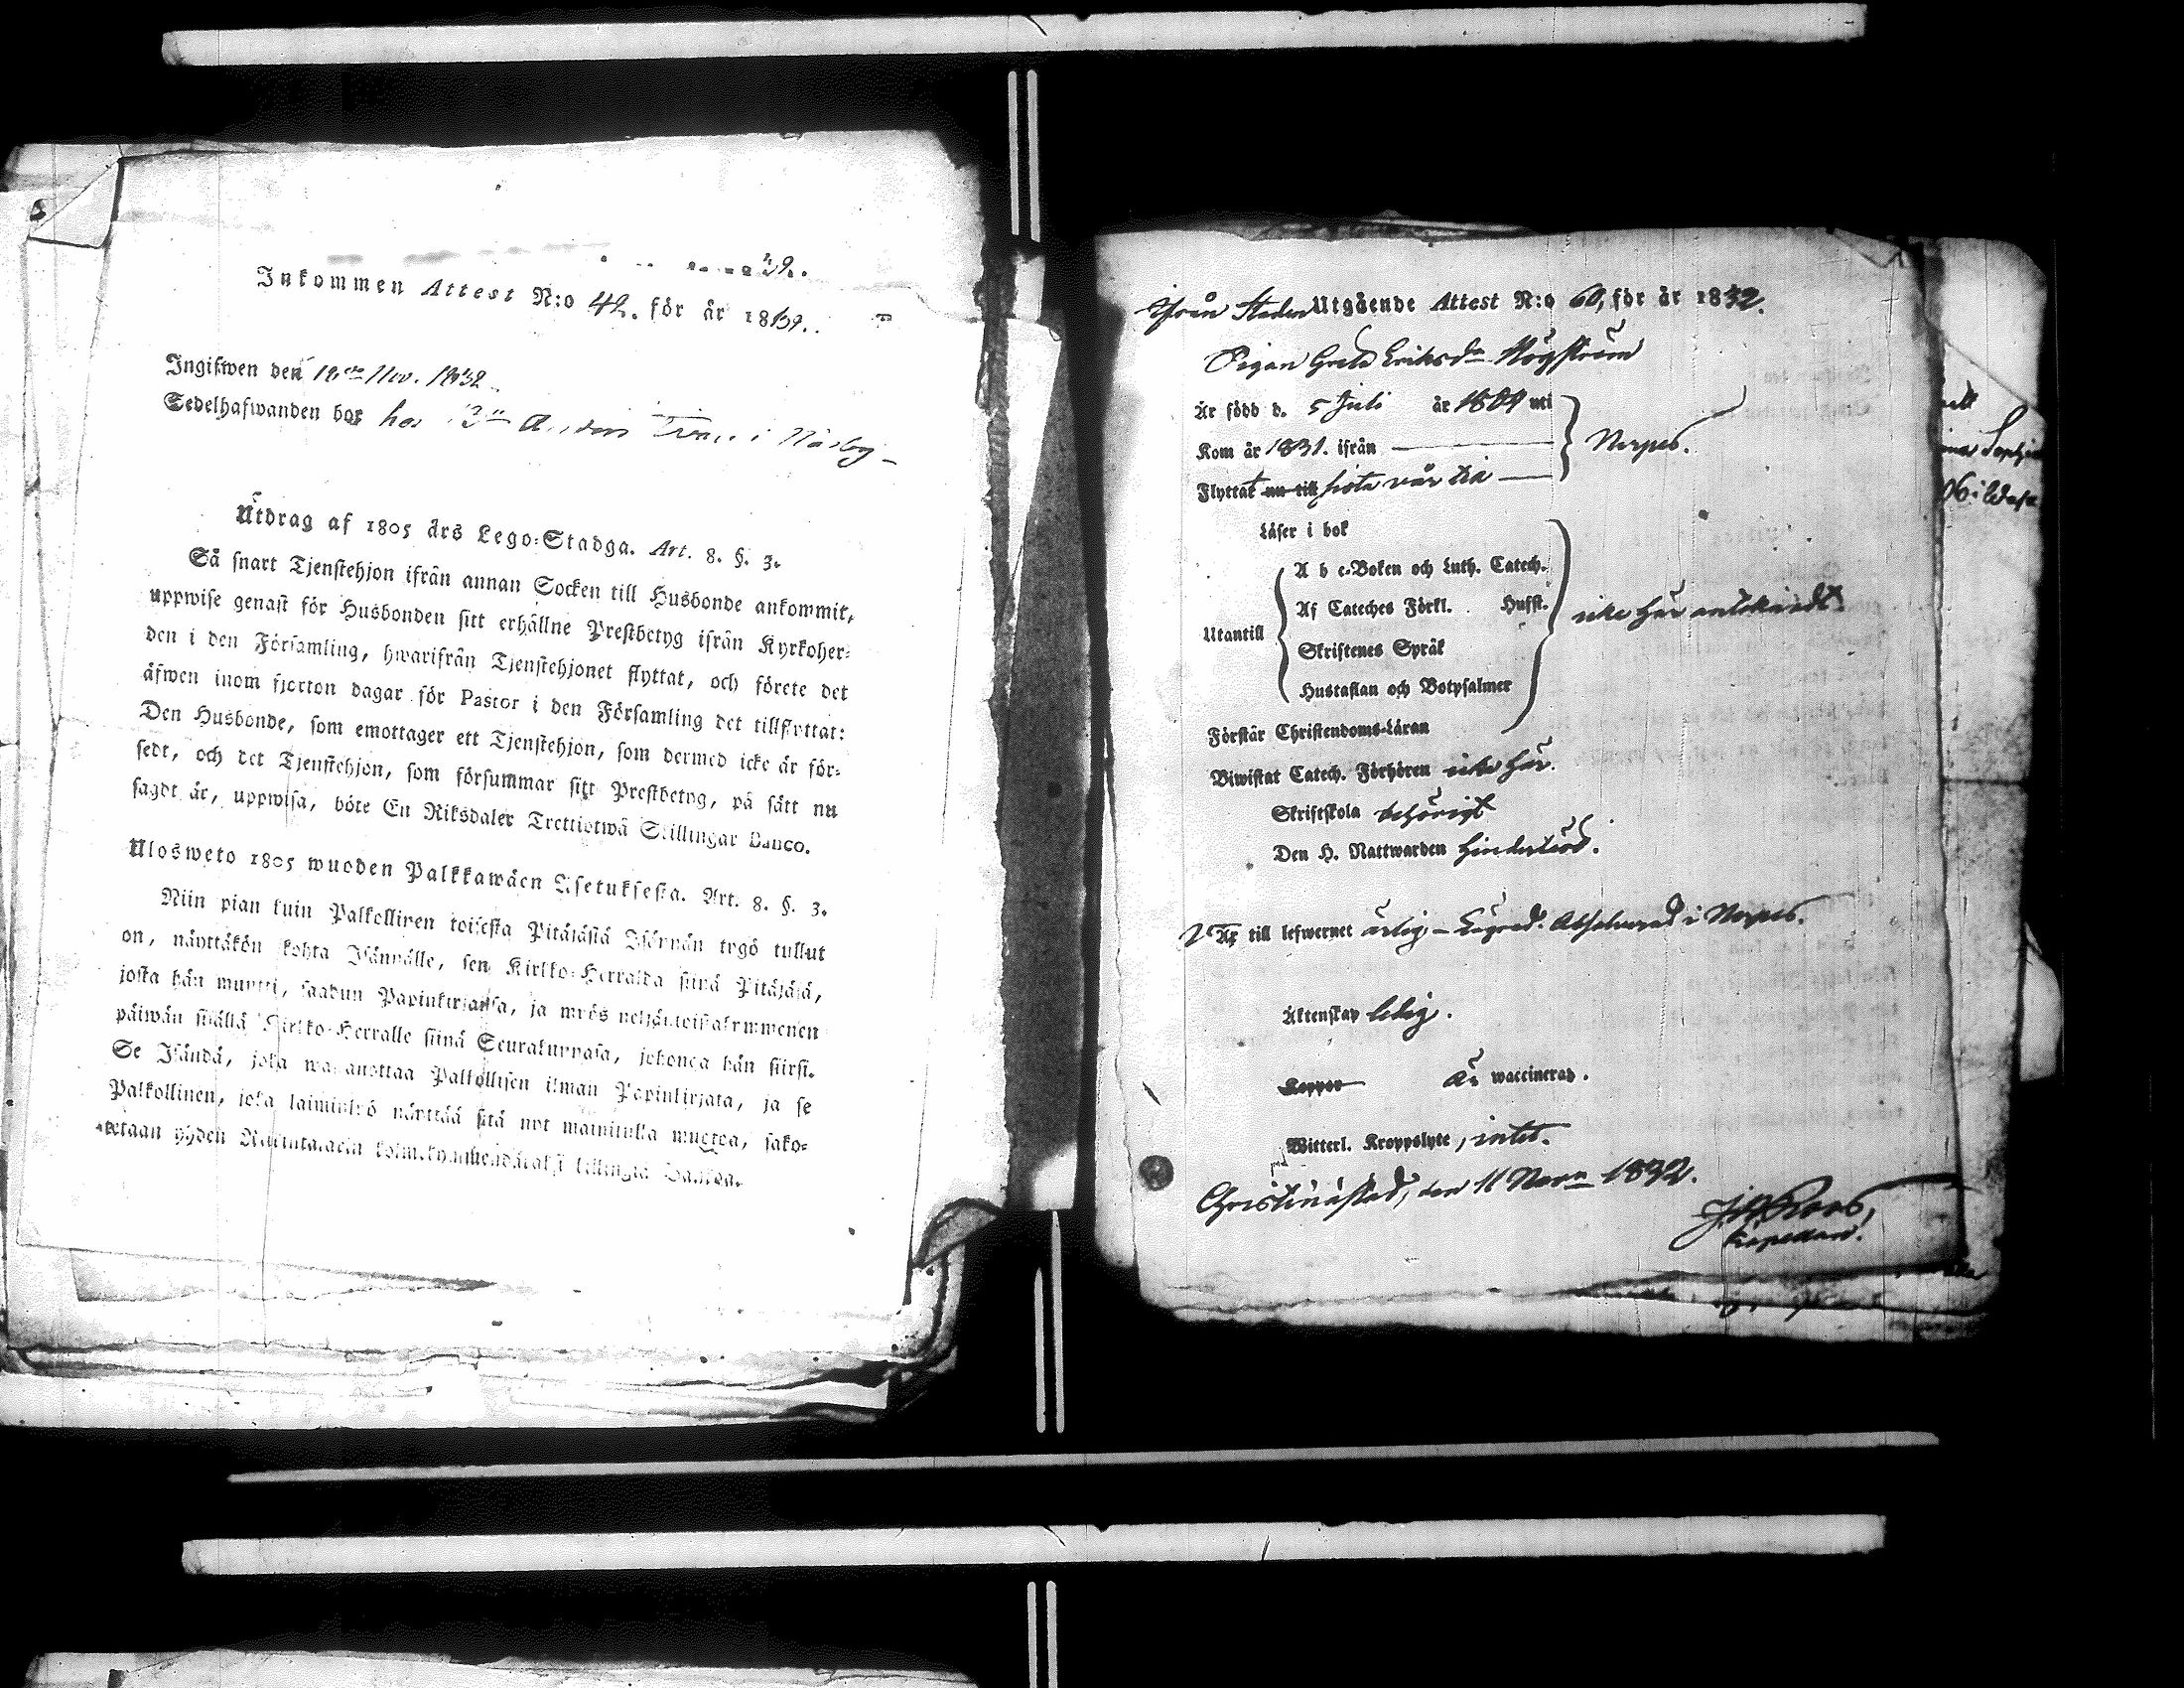 Inkommen Attest N:o 42. för år 1832.
Ingifwen den 18de Nov. 1832
Sedelhafwanden bor hos i Näsby
Utdrag af 1805 års Lego-Stadga. Art. 8. §. 3.
Så snart Tjenstehjon ifrån annan Socken till Husbonde ankommit,
uppwise genast för Husbonden sitt erhållne Prestbetyg ifrån Kyrkoher-
den i den Församling, hwarifrån Tjenstehjonet flyttat, och förete det
äfwen inom fjorton dagar för Pastor i den Församling det tillflyttat:
Den Husbonde, som emottager ett Tjenstehjon, som dermed icke är för-
sedt, och det Tjenstehjon, som försummar sitt Prestbetyg, på sätt nu
sagdt är, uppwisa, böte En Riksdaler Trettiotwå Skillingar Banco.
Ulosweto 1805 wuoden Palkkawäen Asetuksesta. Art. 8. §. 3.
Niin pian kuin Palkollinen toisesta Pitäjästä Isännän tygö tullut
on, näyttäkön kohta Isännälle, sen Kirkko-Herralda siinä Pitäjäsä,
josta hän muutti, saadun Papinkirjansa, ja myös neljäntoistakymmenen
päiwän sisällä Kirkko-Herralle siinä Seurakunnasa, johonga hän siirsi.
Se Isändä, joka wastanottaa Palkollisen ilman Papinkirjata, ja se
Palkollinen, joka laiminlyö näyttää sitä nyt mainitulla muotoa, sako-
tetaan yhden
Ifrån Staden Utgående Attest N:o 60, för år 1832.
Pigan Greta Eriksdr Högström
Är född d. 5 Juli år 1804 uti
Kom år 1831. ifrån
Norpes.
Flyttat nu till sista vår
Läser i bok
A b c-Boken och Luth. Catech.
Af Cateches Förkl. Hufst.
icke här antecknadt.
Utantill
Skriftenes Språk
Hustaflan och Botpsalmer
Förstår Christendoms-Läran
Biwistat Catech. Förhören icke här.
Skriftskola behörigt
Den H. Nattwarden hinderlös.
Är till lefwernet ärlig i Norpes.
Äktenskap ledig.
Koppor Är waccinerad.
Witterl. Kroppslyte, intet.
Christinästad, den 11 Novr 1832.
Roos,
Kapellan.